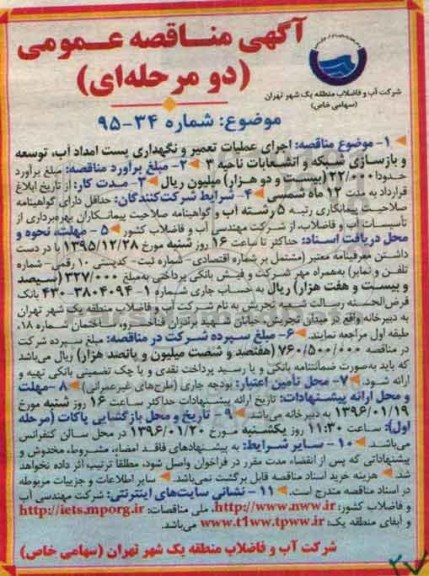 آگهی مناقصه عمومی
(دو مرحله‌ای)
شرکت آب و فاضلاب منطقه یک شهر تهران
(سهامی خاص)
موضوع: شماره ۳۴-۹۵
۱- موضوع مناقصه: اجرای عملیات تعمیر و نگهداری پست امداد آب، توسعه
و بازسازی شبکه و انشعابات ناحیه ۳ ۲- مبلغ برآورد مناقصه: مبلغ برآورد
حدودا ۲۲/۰۰۰ (بیست و دو هزار) میلیون ریال ۳- مدت کار: از تاریخ ابلاغ
قرارداد به مدت ۱۲ ماه شمسی ۴- شرایط شرکت‌کنندگان: حداقل دارای گواهینامه
صلاحیت پیمانکاری رتبه ۵ رشته آب و گواهینامه صلاحیت پیمانکاران بهره‌برداری از
تأسیسات آب و فاضلاب، از شرکت مهندسی آب و فاضلاب کشور ۵- مهلت، نحوه و
محل دریافت اسناد: حداکثر تا ساعت ۱۶ روز شنبه مورخ ۱۳۹۵/۱۲/۲۸ با در دست
داشتن معرفینامه معتبر (مشتمل بر شماره اقتصادی- شماره ثبت- کدپستی ۱۰ رقمی- شماره
تلفن و نمابر) به‌همراه مهر شرکت و فیش بانکی پرداختی به‌مبلغ ۳۲۷/۰۰۰ (سیصد
و بیست و هفت هزار) ریال به حساب جاری شماره ۱-۳۸۰۴۰۹۴-۴۳۰ بانک
قرض‌الحسنه رسالت شعبه تجریش به نام شرکت آب و فاضلاب منطقه یک شهر تهران
به دبیرخانه واقع در میدان تجریش، خیابان شهید برادران فناخسرو، ساختمان شماره ۱۸،
طبقه اول مراجعه نمایند. ۶- مبلغ سپرده شرکت در مناقصه: مبلغ سپرده شرکت
در مناقصه ۷۶۰/۵۰۰/۰۰۰ (هفتصد و شصت میلیون و پانصد هزار) ریال می‌باشد
که باید به‌صورت ضمانتنامه بانکی و یا رسید پرداخت نقدی و یا چک تضمینی بانکی تهیه و
ارائه شود. ۷- محل تأمین اعتبار: بودجه جاری (طرح‌های غیرعمرانی) ۸- مهلت
و محل ارائه پیشنهادات: تاریخ ارائه پیشنهادات حداکثر ساعت ۱۶ روز شنبه مورخ
۱۳۹۶/۰۱/۱۹ به دبیرخانه می‌باشد. ۹- تاریخ و محل بازگشایی پاکات (مرحله
اول): ساعت ۱۱:۳۰ روز یکشنبه مورخ ۱۳۹۶/۰۱/۲۰ در محل سالن کنفرانس
می‌باشد. ۱۰- سایر شرایط: به پیشنهادهای فاقد امضاء، مشروط، مخدوش و
پیشنهاداتی که پس از انقضاء مدت مقرر در فراخوان واصل شود، مطلقا ترتیب اثر داده نخواهد
شد. هزینه خرید اسناد مناقصه قابل برگشت نمی‌باشد. سایر اطلاعات و جزییات مربوطه
در اسناد مناقصه مندرج است. ۱۱- نشانی سایت‌های اینترنتی: شرکت مهندسی آب
و فاضلاب کشور: http://www.nww.ir، ملی مناقصات: http://iets.mporg.ir
و آبفای منطقه یک: www.t1ww.tpww.ir می‌باشد.
شرکت آب و فاضلاب منطقه یک شهر تهران (سهامی خاص)